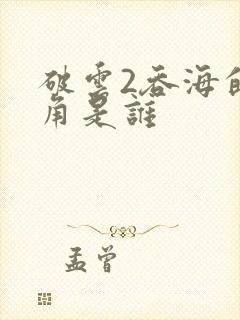 破雲2吞海的
角是誰
孟曾